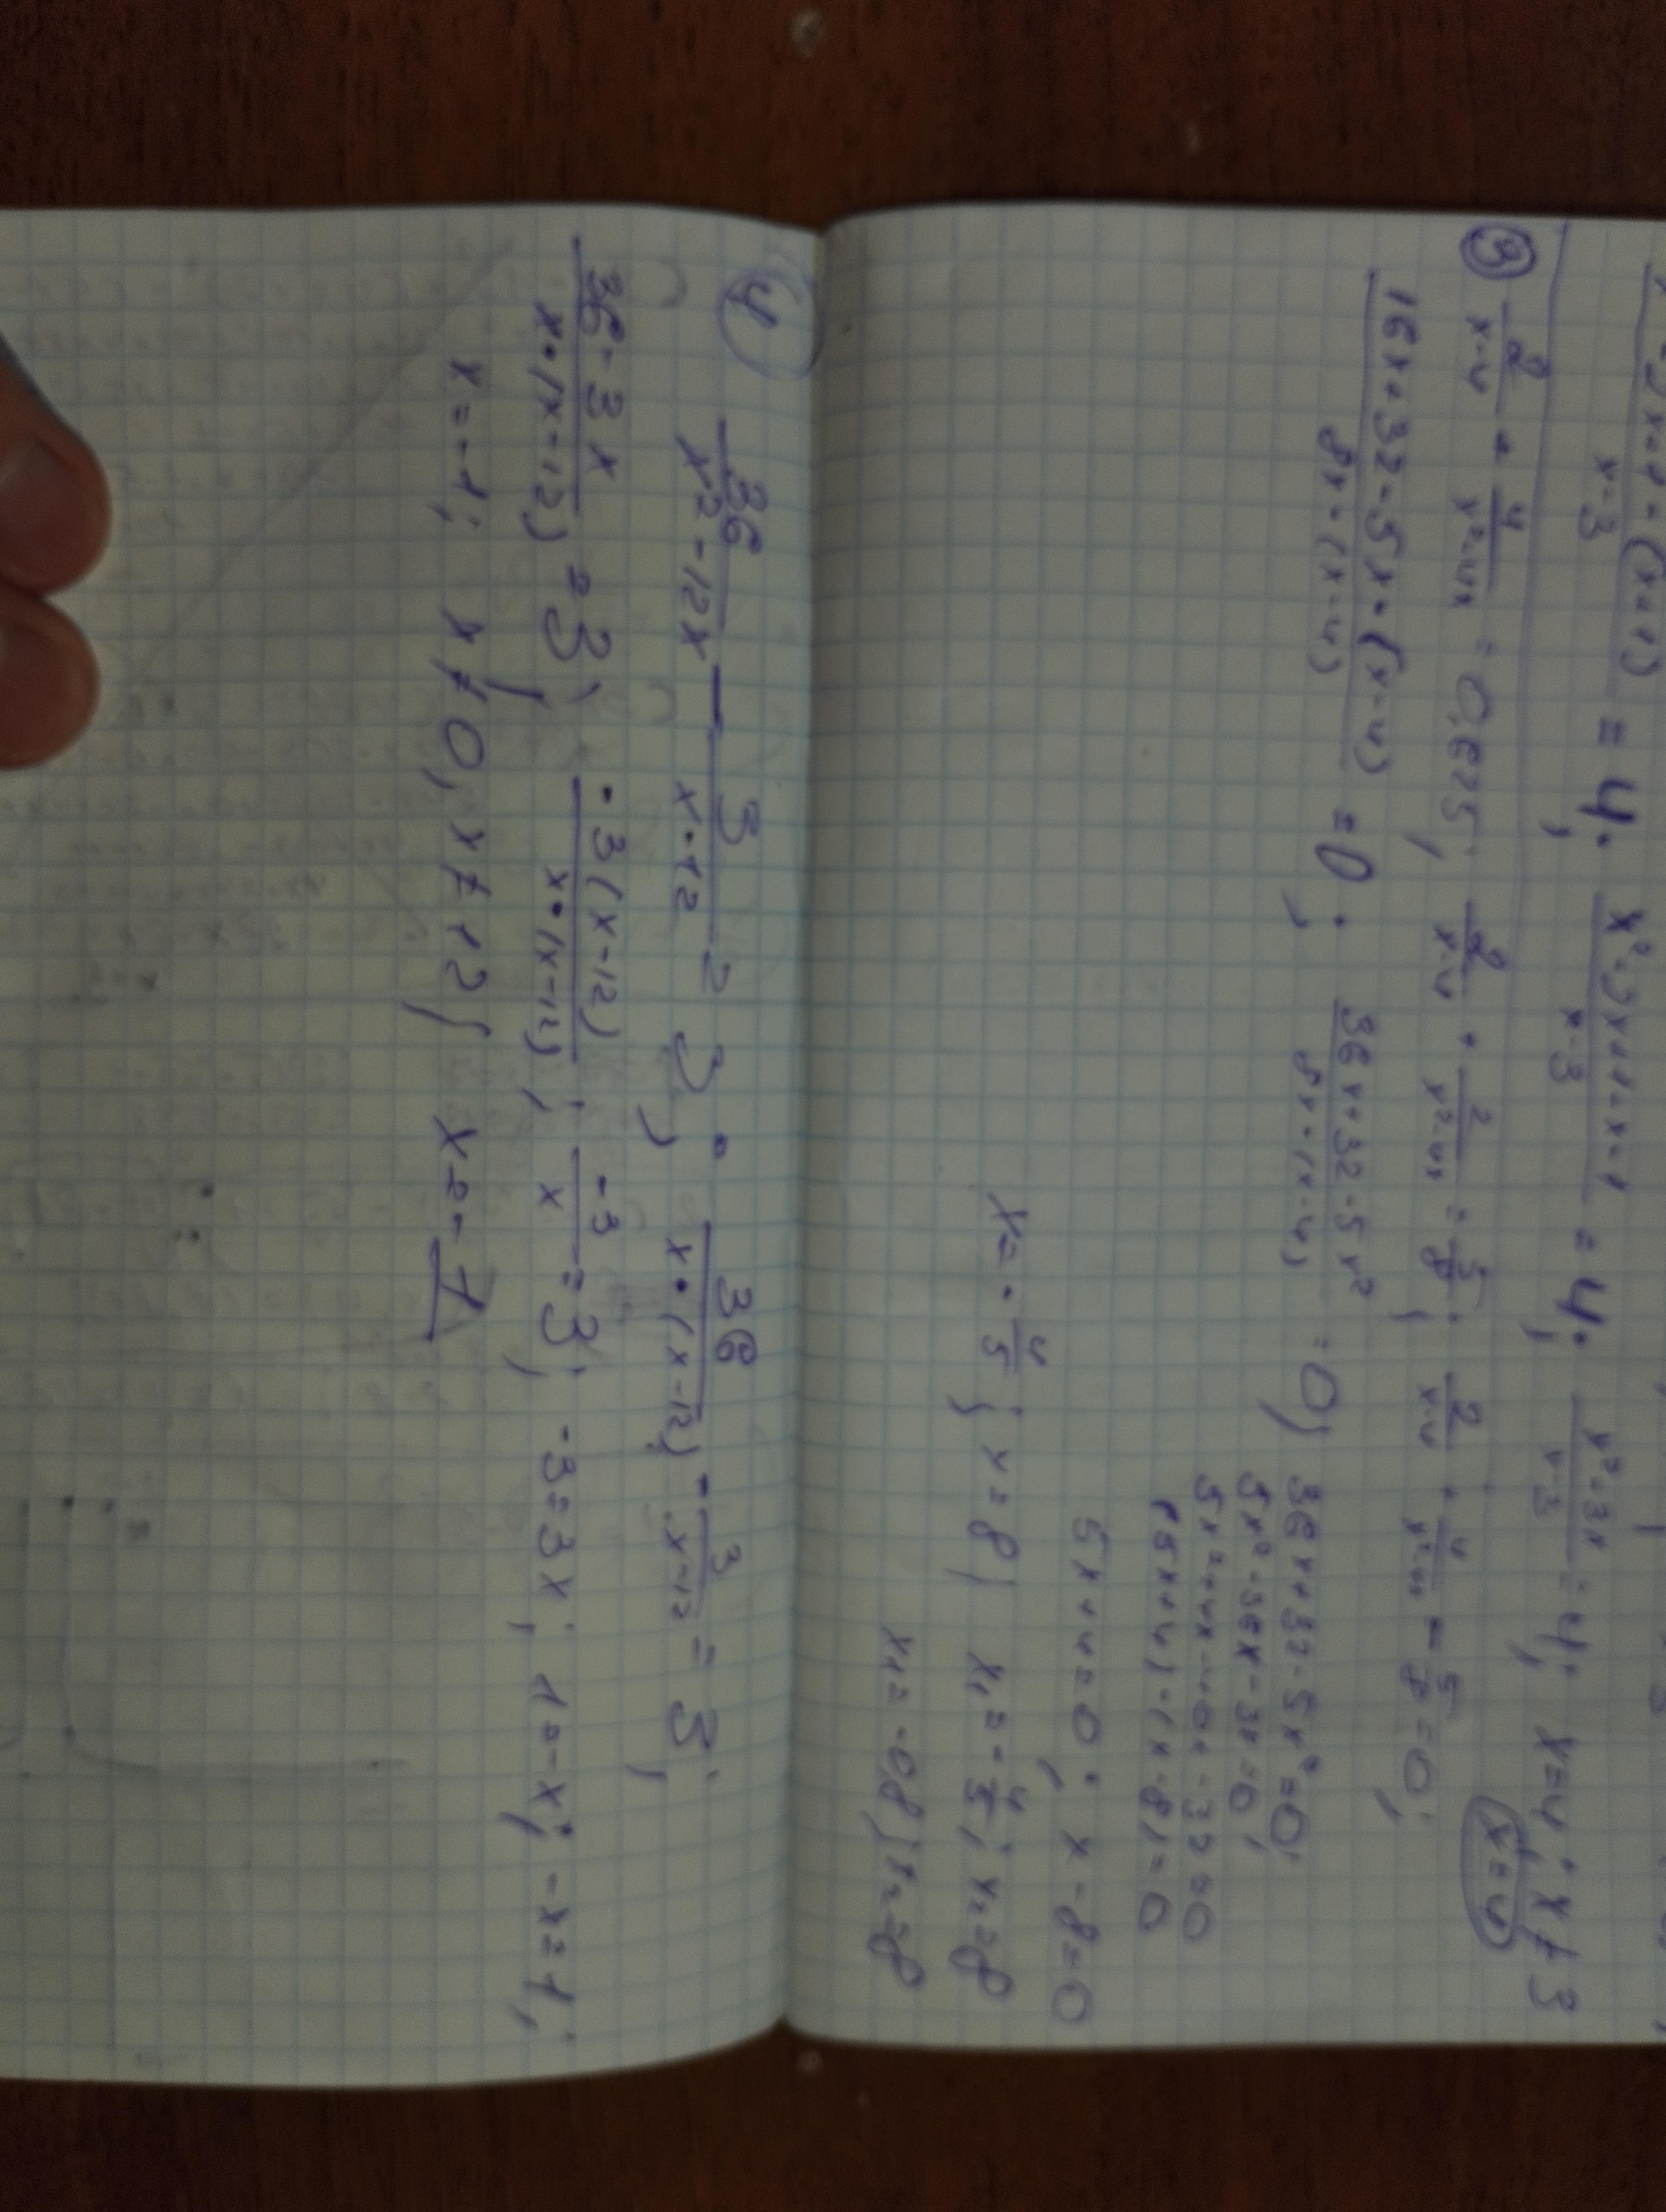 x-3 = 4; x²-3x+1-x-1 / x-3 = 4; x²-3x / x-3 = 4; x=4; x≠3
x=4
③ 2/x-4 + 4/x²-4x = 0,625; 2/x-4 + 2/x²-4x = 5/8; 2/x-4 + 4/x²-4x - 5/8 = 0;
16x+32-5x·(x-4) / 8x·(x-4) = 0; 36x+32-5x² / 8x·(x-4) = 0; 36x+32-5x²=0;
5x²-36x-32=0;
5x²+4x-40x-32=0
(5x+4)-(x-8)=0
5x+4=0; x-8=0
x=-4/5; x=8; x₁=-4/5; x₂=8
x₁=-0,8; x₂=8
④ 36/x²-12x - 3/x-12 = 3; 36/x·(x-12) - 3/x-12 = 3;
36-3x / x·(x-12) = 3; -3(x-12) / x·(x-12); -3/x = 3; -3=3x; 1=-x; -x=1;
x=-1; x≠0, x≠12; x=-1